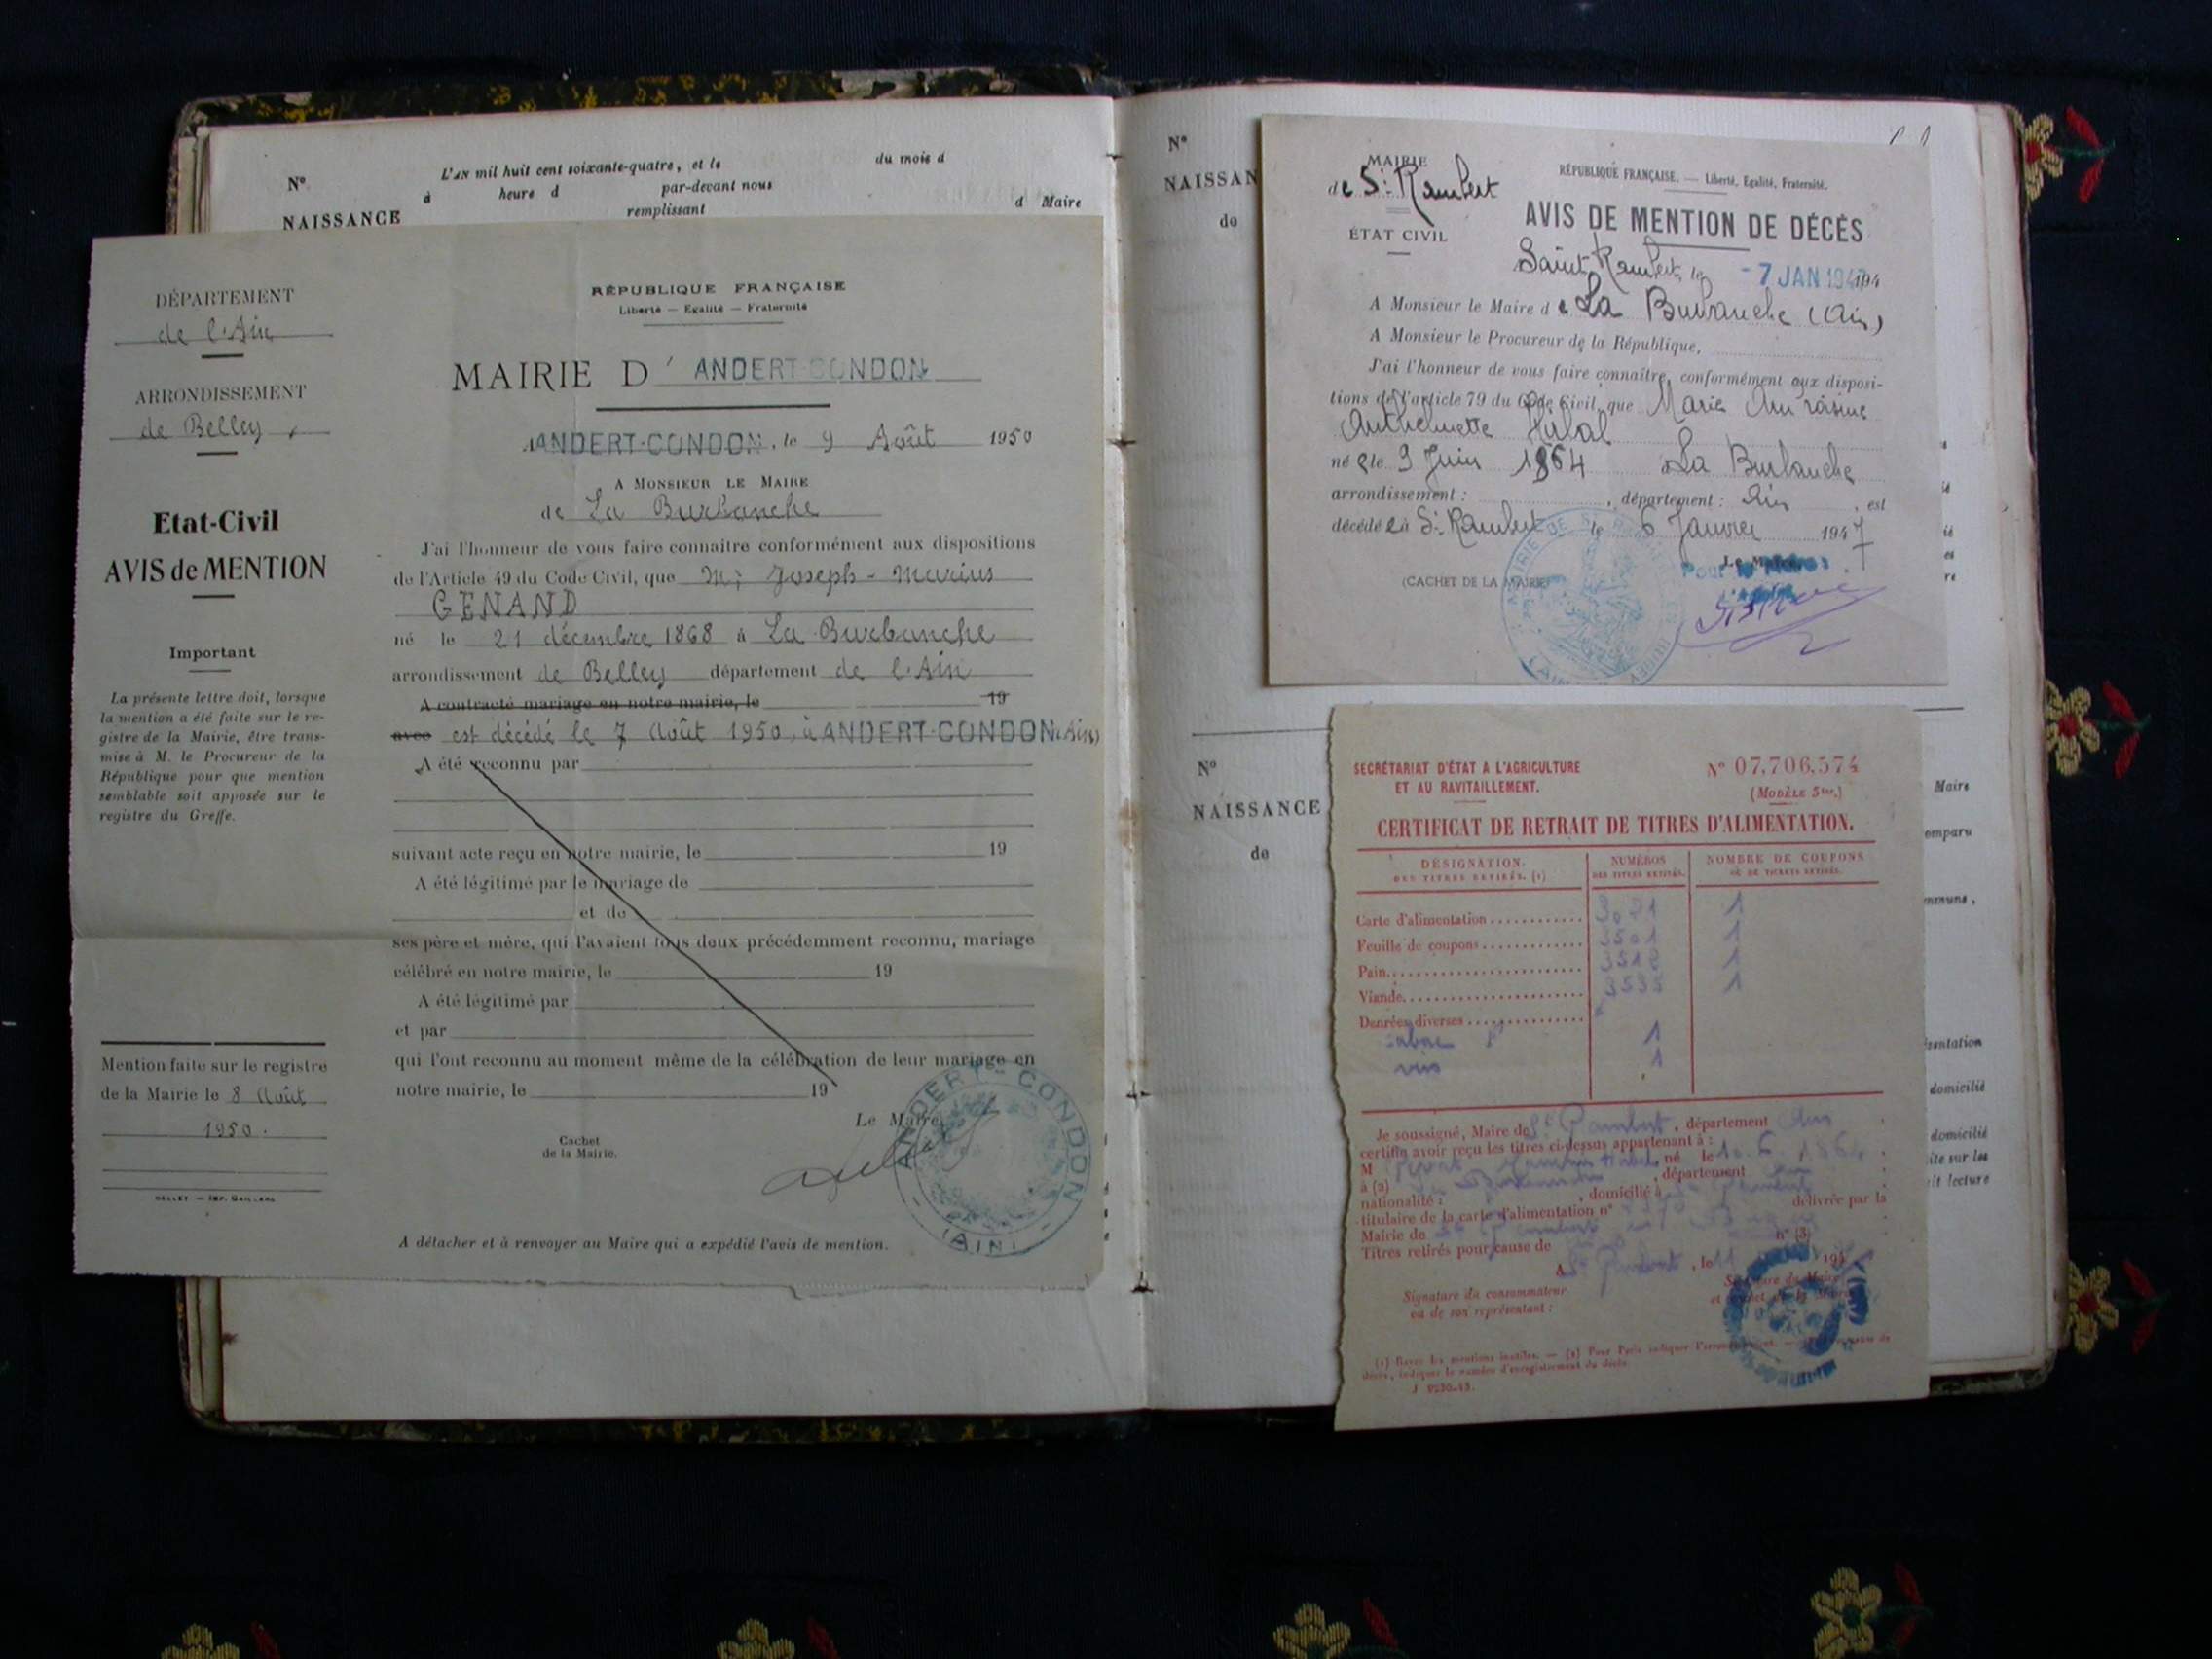 L'AN mil huit cent soixante-quatre, et le du mois d
N° à heure d par-devant nous
NAISSANCE remplissant d Maire
DÉPARTEMENT
de l'Ain
ARRONDISSEMENT
de Belley
Etat-Civil
AVIS de MENTION
Important
La présente lettre doit, lorsque
la mention a été faite sur le re-
gistre de la Mairie, être trans-
mise à M. le Procureur de la
République pour que mention
semblable soit apposée sur le
registre du Greffe.
Mention faite sur le registre
de la Mairie le 8 Août
1950.
BELLEY. — IMP. GAILLARD
RÉPUBLIQUE FRANÇAISE
Liberté — Egalité — Fraternité
MAIRIE D' ANDERT-CONDON
ANDERT-CONDON, le 9 Août 1950
A MONSIEUR LE MAIRE
de La Burbanche
J'ai l'honneur de vous faire connaitre conformément aux dispositions
de l'Article 49 du Code Civil, que Mr Joseph - Marius
GENAND
né le 21 décembre 1868 à La Burbanche
arrondissement de Belley département de l'Ain
A contracté mariage en notre mairie, le 19
avec est décédé le 7 Août 1950, à ANDERT-CONDON (Ain)
A été reconnu par
suivant acte reçu en notre mairie, le 19
A été légitimé par le mariage de
et de
ses père et mère, qui l'avaient tous deux précédemment reconnu, mariage
célébré en notre mairie, le 19
A été légitimé par
et par
qui l'ont reconnu au moment même de la célébration de leur mariage en
notre mairie, le 19
Le Maire,
Cachet
de la Mairie.
ANDERT-CONDON
(AIN)
A détacher et à renvoyer au Maire qui a expédié l'avis de mention.
N°
NAISSAN
de
MAIRIE
de St Rambert
ÉTAT CIVIL
RÉPUBLIQUE FRANÇAISE. — Liberté, Egalité, Fraternité.
AVIS DE MENTION DE DÉCÈS
Saint Rambert, le -7 JAN 1947 194
A Monsieur le Maire de La Burbanche (Ain)
A Monsieur le Procureur de la République,
J'ai l'honneur de vous faire connaître, conformément aux disposi-
tions de l'article 79 du Code Civil, que Marie
Anthelmette
née le 9 Juin 1864 La Burbanche
arrondissement : , département : Ain , est
décédée à St Rambert le 6 Janvier 1947
Pour le Maire
(CACHET DE LA MAIRIE)
N°
NAISSANCE
de
Maire
omparu
domicilié
domicilié
ite sur les
it lecture
SECRÉTARIAT D'ÉTAT A L'AGRICULTURE
ET AU RAVITAILLEMENT.
N° 07,706,574
(MODÈLE 5ter.)
CERTIFICAT DE RETRAIT DE TITRES D'ALIMENTATION.
DÉSIGNATION. NUMÉROS NOMBRE DE COUPONS
DES TITRES RETIRÉS. (1) DES TITRES RETIRÉS. OU DE TICKETS RETIRÉS.
Carte d'alimentation 1
Feuille de coupons 3501 1
Pain 3518 1
Viande 3535 1
Denrées diverses
tabac 1
vin 1
Je soussigné, Maire de St Rambert, département Ain
certifie avoir reçu les titres ci-dessus appartenant à :
M né le
à (2) , département
nationalité : , domicilié à
titulaire de la carte d'alimentation n° délivrée par la
Mairie de
Titres retirés pour cause de n° (3)
A St Rambert, le 11 194
Signature du consommateur
ou de son représentant :
Signature du Maire
et cachet de la Mairie
(1) Rayer les mentions inutiles. — (2) Pour Paris indiquer l'arrondissement. —
décès, indiquer le numéro d'enregistrement du décès